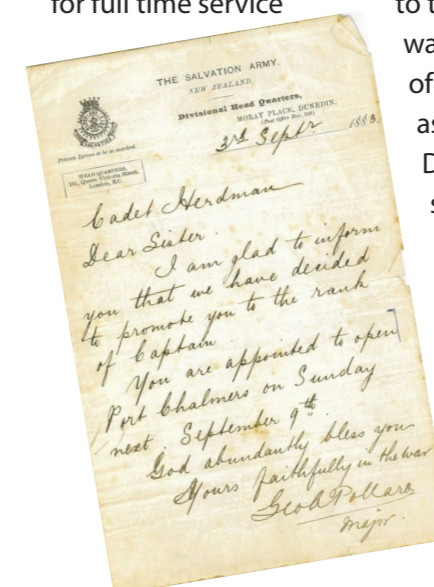 for full time service
to t
wa
of
as
D
s
THE SALVATION ARMY.
NEW ZEALAND.
Divisional Head Quarters,
MORAY PLACE, DUNEDIN.
3rd Septr. 1883.
Private Letters to be so marked.
HEAD-QUARTERS,
101, Queen Victoria Street,
London, E.C.
Cadet Herdman
Dear Sister.
I am glad to inform
you that we have decided
to promote you to the rank
of Captain.
You are appointed to open
Port Chalmers on Sunday
next. September 9th.
God abundantly bless you
Yours faithfully in the war
Geo A Pollard
Major.